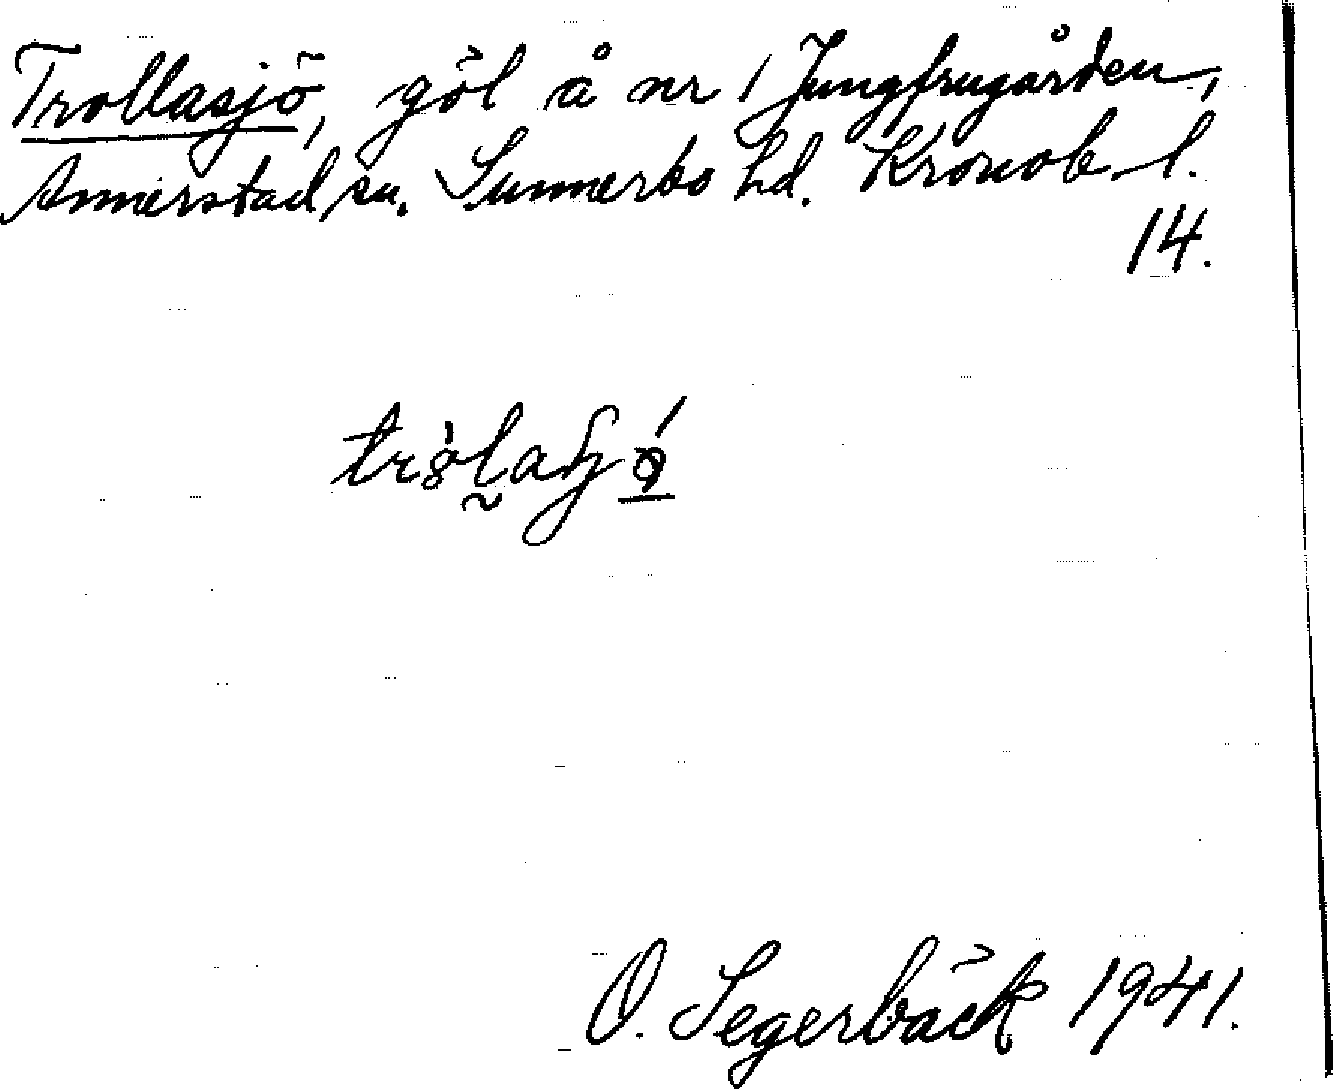 Trollasjö, göl å nr 1 Jungfrugården,
Annerstad sn. Sunnerbo hd. Kronob. l.
14.
O. Segerbäck 1941.